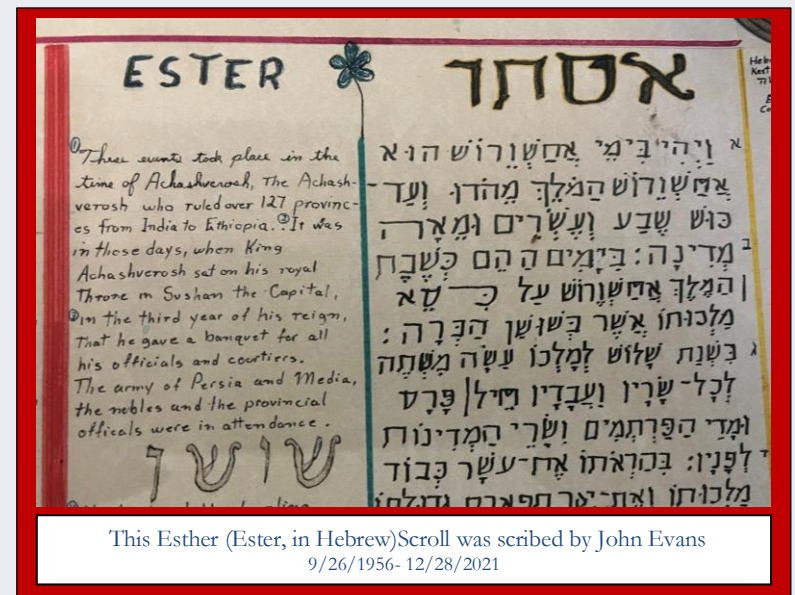 ESTER
① These events took place in the
time of Achashverosh, The Achash-
verosh who ruled over 127 provinc-
es from India to Ethiopia. ② It was
in those days, when King
Achashverosh sat on his royal
Throne in Sushan the Capital,
③ in the third year of his reign,
That he gave a banquet for all
his officials and courtiers.
The army of Persia and Media,
the nobles and the provincial
officals were in attendance.
שושן
אסתר
א וַיְהִי בִּימֵי אֲחַשְׁוֵרוֹשׁ הוּא
אֲחַשְׁוֵרוֹשׁ הַמֹּלֵךְ מֵהֹדּוּ וְעַד־
כּוּשׁ שֶׁבַע וְעֶשְׂרִים וּמֵאָה
ב מְדִינָה: בַּיָּמִים הָהֵם כְּשֶׁבֶת
הַמֶּלֶךְ אֲחַשְׁוֵרוֹשׁ עַל כִּסֵּא
מַלְכוּתוֹ אֲשֶׁר בְּשׁוּשַׁן הַבִּרָה:
ג בִּשְׁנַת שָׁלוֹשׁ לְמָלְכוֹ עָשָׂה מִשְׁתֶּה
לְכָל־שָׂרָיו וַעֲבָדָיו חֵיל | פָּרַס
וּמָדַי הַפַּרְתְּמִים וְשָׂרֵי הַמְּדִינוֹת
לְפָנָיו: בְּהַרְאֹתוֹ אֶת־עֹשֶׁר כְּבוֹד
מַלְכוּתוֹ
This Esther (Ester, in Hebrew)Scroll was scribed by John Evans
9/26/1956- 12/28/2021